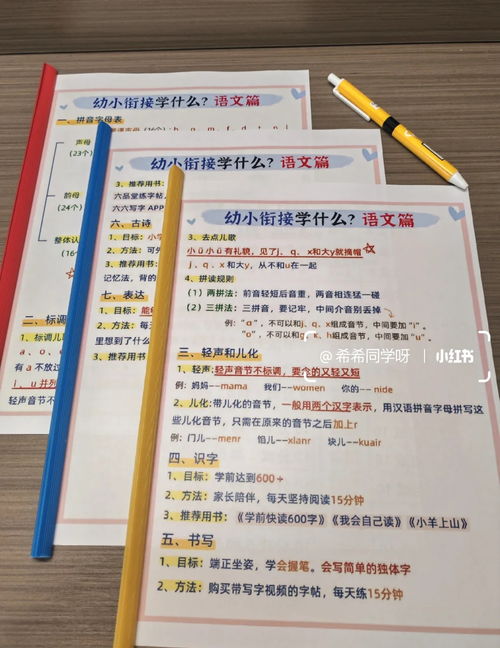 幼小衔接学什么？语文篇
一、拼音字母表
声母
(23个)
韵母
(24个)
整体认
(16个
二、标调
1、标调儿
a、o、e
有 a 不放过
i、u并列
轻声音节不
幼小衔接学什么？语文篇
3、推荐用书：
六品堂练字帖，
六六写字 APP
六、古诗
1、目标：小学
2、方法：可先
3、推荐用书：
记忆法，背的
七、表达
1、目标：能
2、方法：每天
里想到了什么
3、推荐用书
幼小衔接学什么？语文篇
3、去点儿歌
小ü小ü有礼貌，见了j、q、x和大y就摘帽☆
j、q、x和大y，从不和u在一起
4、拼读规则
（1）两拼法：前音轻短后音重，两音相连猛一碰
（2）三拼法：三拼音，要记牢，中间介音别丢掉
例：“ɑ”，不可以和j、q、x组成音节，中间要加“i”。
“o”，不可以和g、k、h组成音节，中间要加“u”。
三、轻声和儿化
1、轻声：轻声音节不标调，要念的又轻又短
例：妈妈--mama 我们--women 你的--nide
2、儿化：带儿化的音节，一般用两个汉字表示，用汉语拼音字母拼写这
些儿化音节，只需在原来的音节之后加上r
例：门儿--menr 馅儿--xianr 块儿--kuair
四、识字
1、目标：学前达到600+
2、方法：家长陪伴，每天坚持阅读15分钟
3、推荐用书：《学前快读600字》《我会自己读》《小羊上山》
五、书写
1、目标：端正坐姿，学会握笔。会写简单的独体字
2、方法：购买带写字视频的字帖，每天练15分钟
@希希同学呀 | 小红书